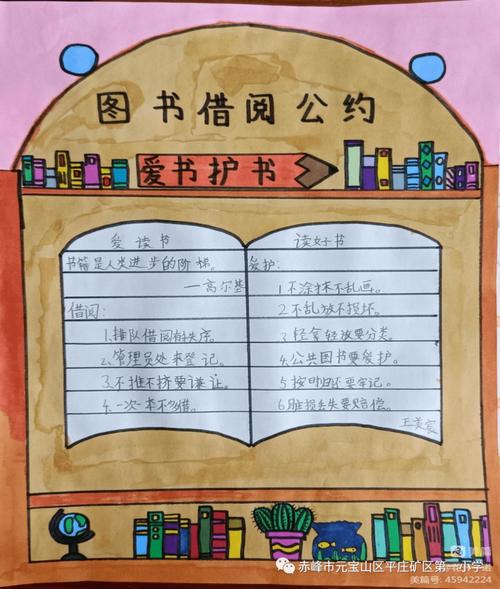 图书借阅公约
爱书护书
爱读书
书籍是人类进步的阶梯。
——高尔基
借阅:
1.排队借阅有秩序。
2.管理员处来登记。
3.不推不挤要谦让。
4.一次一本不多借。
读好书
爱护:
1不涂抹不乱画。
2不乱放不损坏。
3轻拿轻放要分类。
4.公共图书要爱护。
5按时归还要牢记。
6脏损丢失要赔偿。
赤峰市元宝山区平庄矿区第一小学
美篇号:45942224